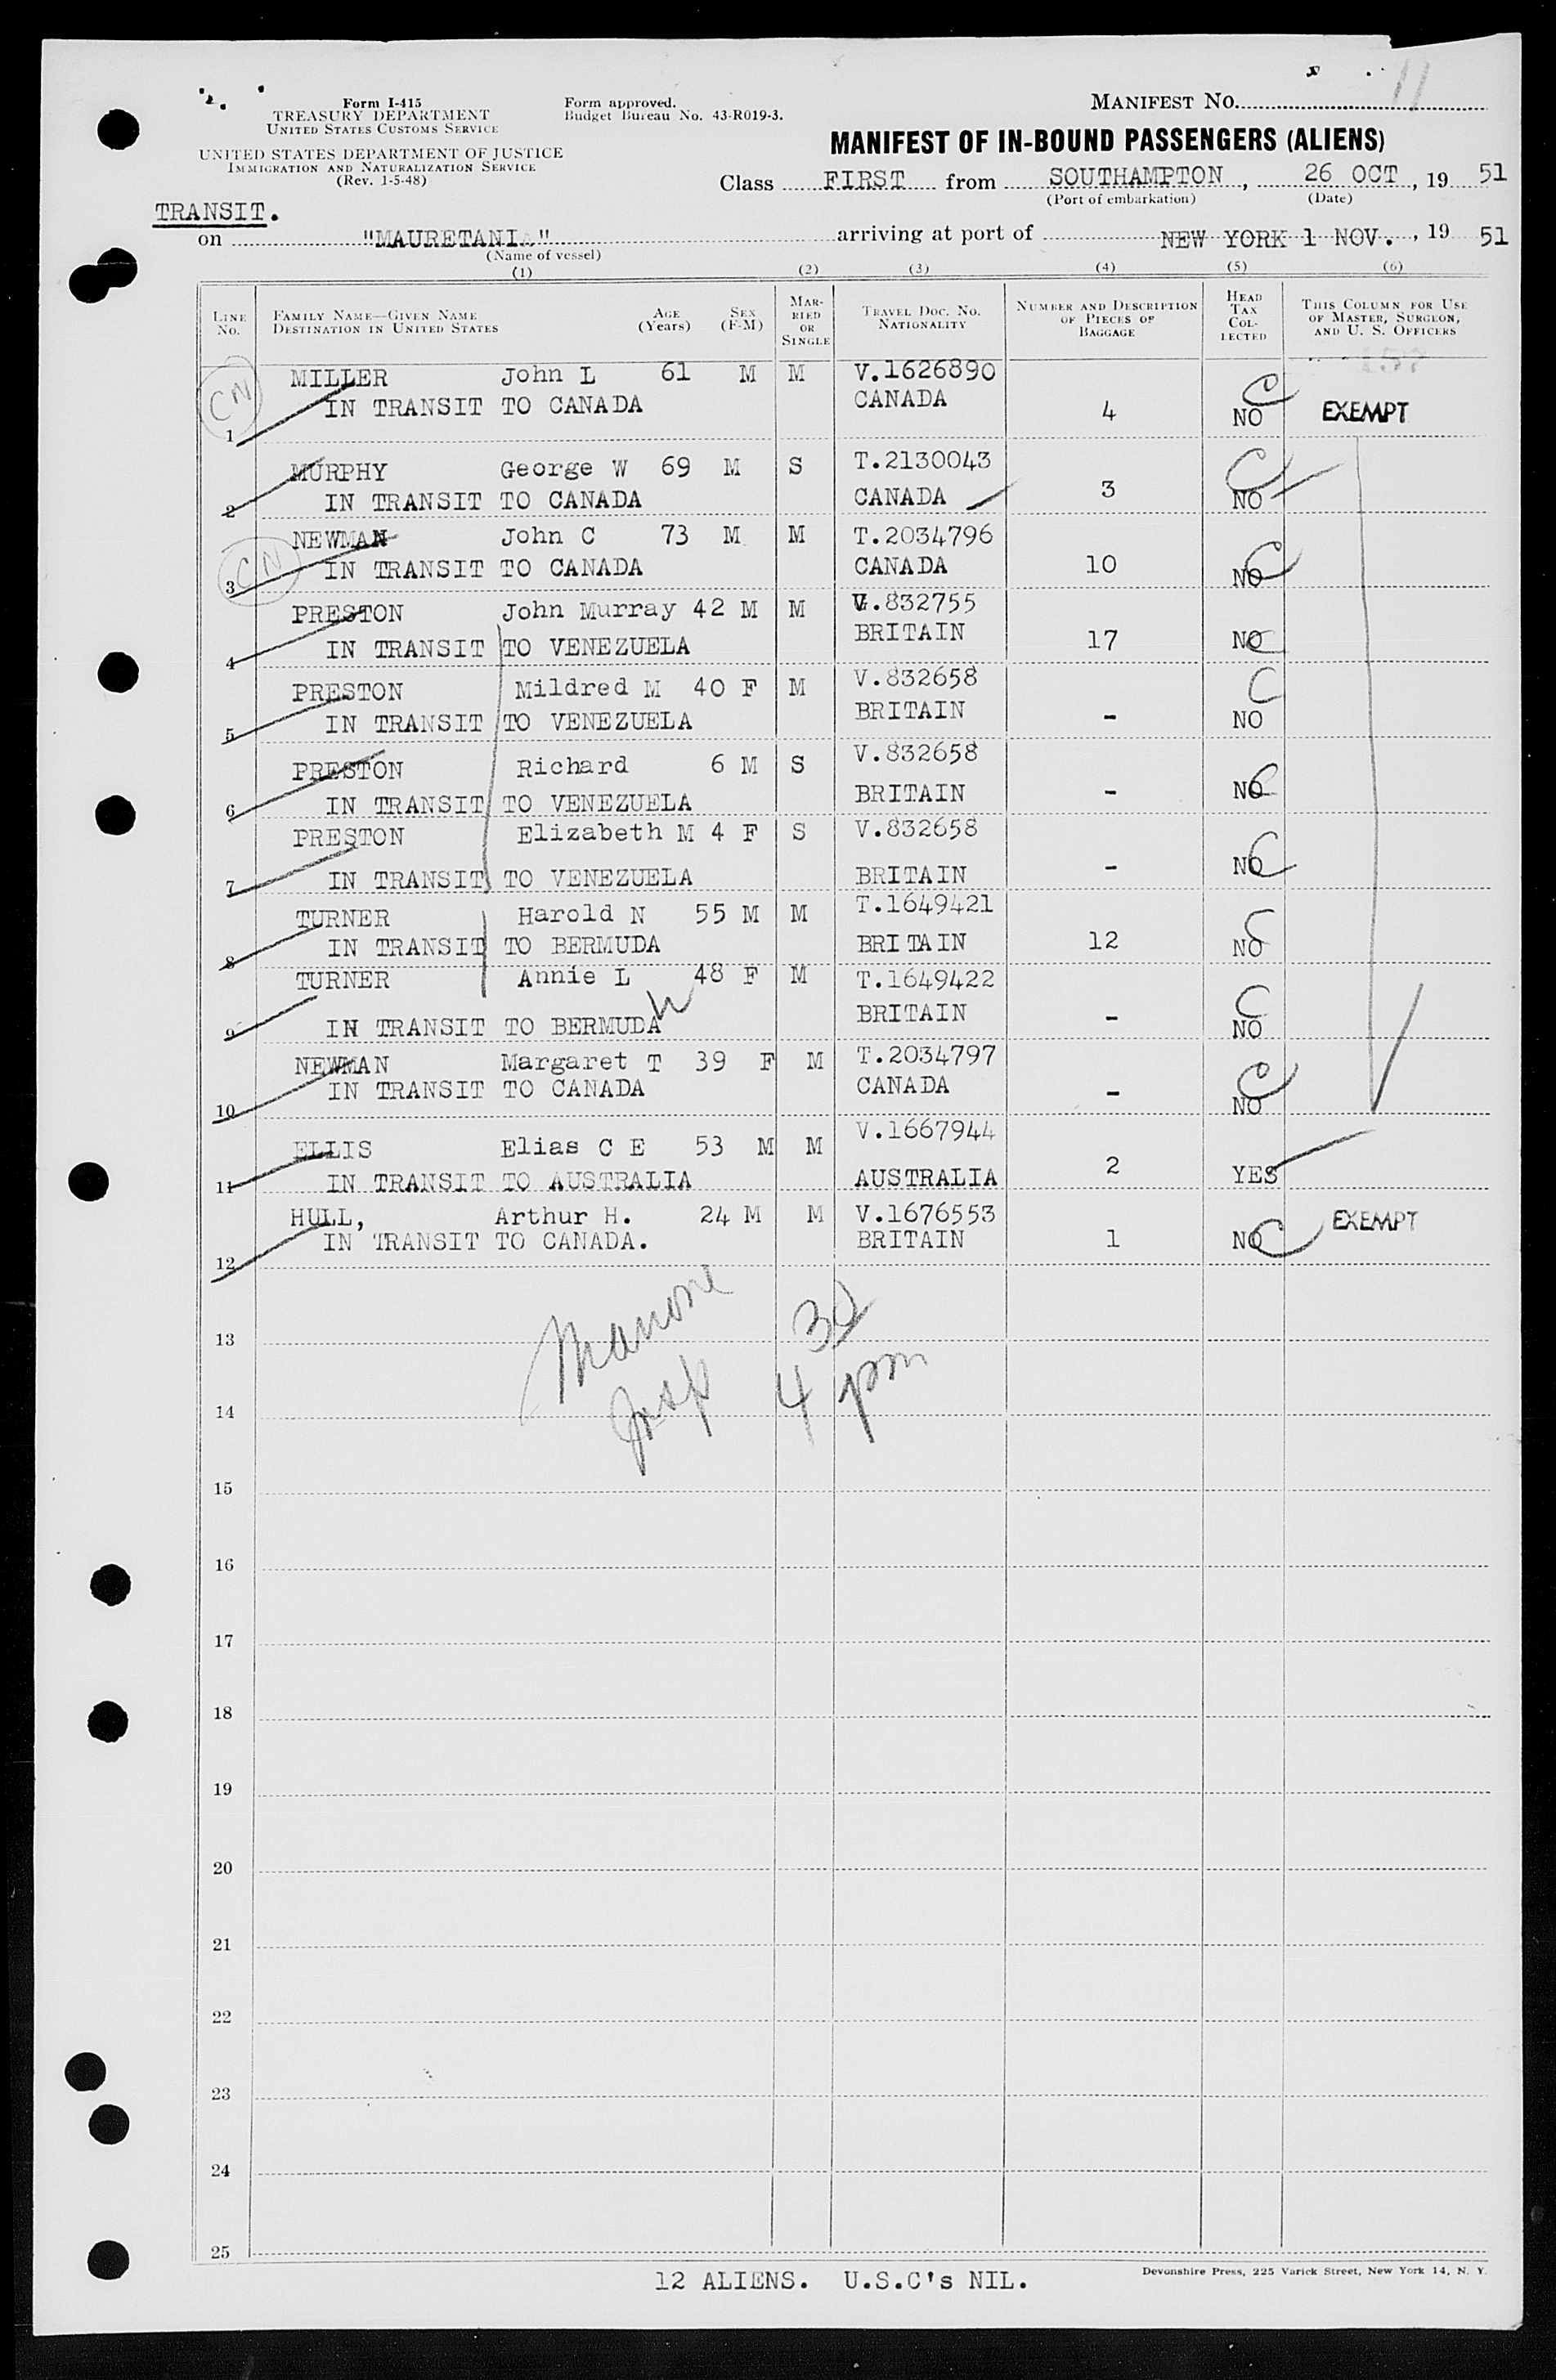 Form I-415
TREASURY DEPARTMENT
UNITED STATES CUSTOMS SERVICE
UNITED STATES DEPARTMENT OF JUSTICE
IMMIGRATION AND NATURALIZATION SERVICE
(Rev. 1-5-48)
Form approved.
Budget Bureau No. 43-R019-3.
MANIFEST NO. 11
MANIFEST OF IN-BOUND PASSENGERS (ALIENS)
Class FIRST from SOUTHAMPTON, 26 OCT, 19 51
(Port of embarkation) (Date)
TRANSIT.
on "MAURETANIA" arriving at port of NEW YORK 1 NOV., 19 51
(Name of vessel)
(1) (2) (3) (4) (5) (6)
LINE No. FAMILY NAME—GIVEN NAME DESTINATION IN UNITED STATES AGE (Years) SEX (F-M) MARRIED OR SINGLE TRAVEL DOC. NO. NATIONALITY NUMBER AND DESCRIPTION OF PIECES OF BAGGAGE HEAD TAX COLLECTED THIS COLUMN FOR USE OF MASTER, SURGEON, AND U. S. OFFICERS
CN MILLER John L 61 M M V.1626890
1 IN TRANSIT TO CANADA CANADA 4 NO C EXEMPT
MURPHY George W 69 M S T.2130043
2 IN TRANSIT TO CANADA CANADA 3 NO C
CN NEWMAN John C 73 M M T.2034796
3 IN TRANSIT TO CANADA CANADA 10 NO C
PRESTON John Murray 42 M M V.832755
4 IN TRANSIT TO VENEZUELA BRITAIN 17 NO C
PRESTON Mildred M 40 F M V.832658
5 IN TRANSIT TO VENEZUELA BRITAIN - NO C
PRESTON Richard 6 M S V.832658
6 IN TRANSIT TO VENEZUELA BRITAIN - NO C
PRESTON Elizabeth M 4 F S V.832658
7 IN TRANSIT TO VENEZUELA BRITAIN - NO C
TURNER Harold N 55 M M T.1649421
8 IN TRANSIT TO BERMUDA BRITAIN 12 NO C
TURNER Annie L 48 F M T.1649422
9 IN TRANSIT TO BERMUDA BRITAIN - NO C
NEWMAN Margaret T 39 F M T.2034797
10 IN TRANSIT TO CANADA CANADA - NO C
ELLIS Elias C E 53 M M V.1667944
11 IN TRANSIT TO AUSTRALIA AUSTRALIA 2 YES
HULL, Arthur H. 24 M M V.1676553
12 IN TRANSIT TO CANADA. BRITAIN 1 NO C EXEMPT
13
14
4 30 pm
15
16
17
18
19
20
21
22
23
24
25
12 ALIENS. U.S.C's NIL.
Devonshire Press, 225 Varick Street, New York 14, N. Y.